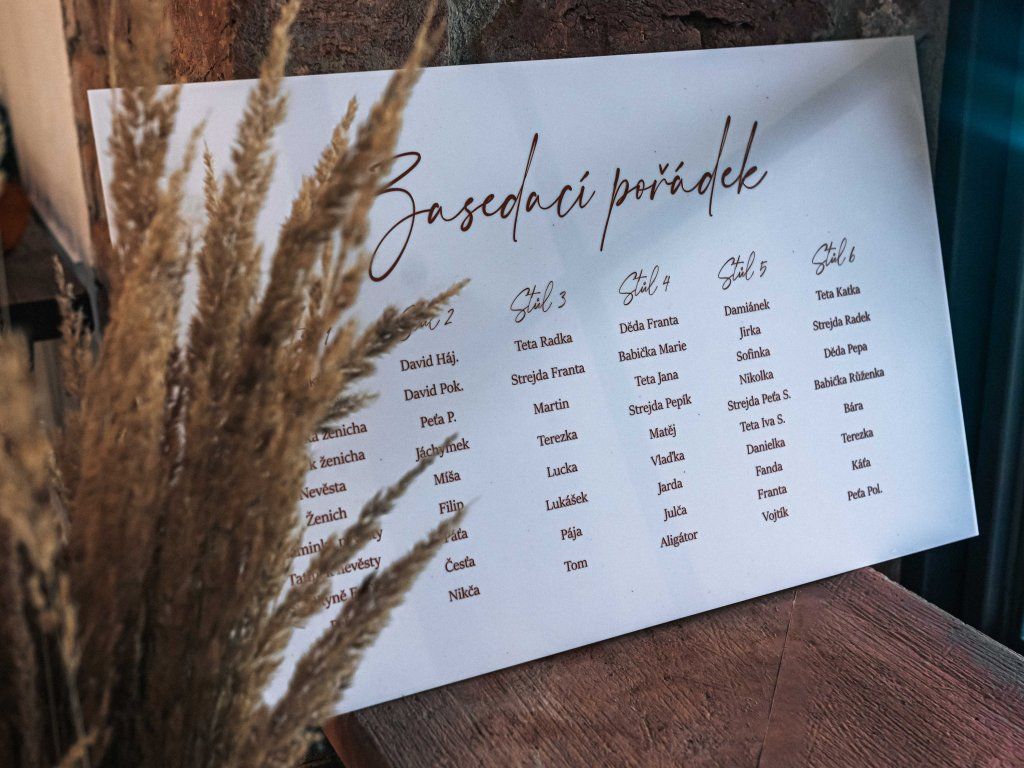 Zasedací pořádek
ženicha
ženicha
Nevěsta
Ženich
nevěsty
2
David Háj.
David Pok.
Peťa P.
Jáchymek
Míša
Filip
Česťa
Nikča
Stůl 3
Teta Radka
Strejda Franta
Martin
Terezka
Lucka
Lukášek
Pája
Tom
Stůl 4
Děda Franta
Babička Marie
Teta Jana
Strejda Pepík
Matěj
Vlaďka
Jarda
Julča
Aligátor
Stůl 5
Damiánek
Jirka
Sofinka
Nikolka
Strejda Peťa S.
Teta Iva S.
Danielka
Fanda
Franta
Vojtík
Stůl 6
Teta Katka
Strejda Radek
Děda Pepa
Babička Růženka
Bára
Terezka
Káťa
Peťa Pol.